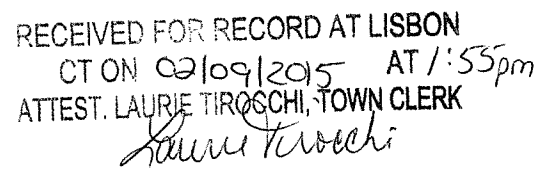 RECEIVED FOR RECORD AT LISBON
CT ON 02/09/2015 AT 1:55pm
ATTEST. LAURIE TIROCCHI, TOWN CLERK
Laurie Tirocchi